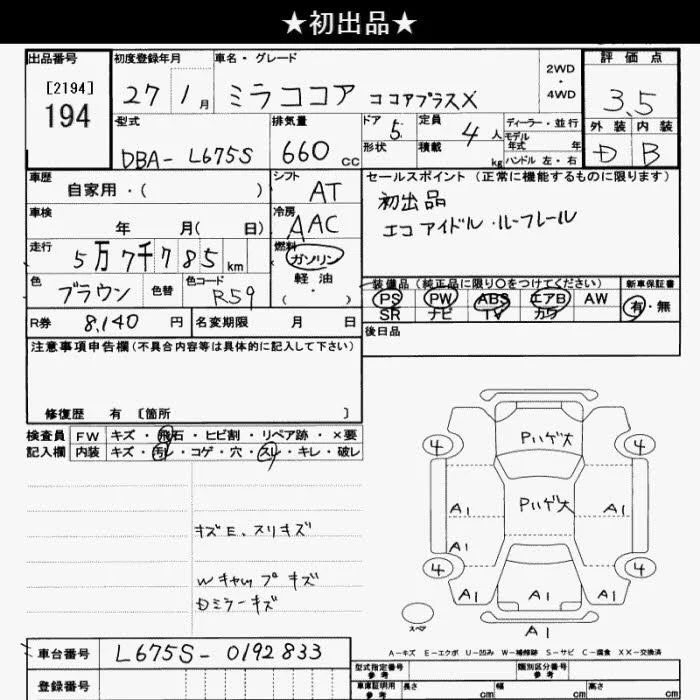 ★初出品★
出品番号
[2194]
194
初度登録年月
27 1月
車名・グレード
ミラココア ココアプラスX
2WD
・
4WD
評価点
3.5
型式
DBA- L675S
排気量
660 cc
ドア 5
形状
定員 4人
積載 kg
ディーラー・並行
モデル
年式 年
ハンドル 左・右
外装 内装
D B
車歴
自家用・( )
シフト
AT
セールスポイント (正常に機能するものに限ります)
初出品
エコアイドル・ルーフレール
車検
年 月( 日)
冷房
AAC
走行
5万7千785km
燃料
ガソリン
軽油
・
( )
色
ブラウン
色替
色コード
R59
装備品 (純正品に限り○をつけてください)
PS PW ABS エアB AW
SR ナビ TV カワ
新車保証書
有・無
R券 8,140 円
名変期限 月 日
後日品
注意事項申告欄(不具合内容等は具体的に記入して下さい)
修復歴 有 [箇所 ]
検査員
記入欄
FW キズ・飛石・ヒビ割・リペア跡・×要
内装 キズ・汚レ・コゲ・穴・スレ・キレ・破レ
キズE、スリキズ
Wキャップキズ
Dミラーキズ
Pハゲ大
4 4
Pハゲ大
A1 A1
A1
4 4
A1 A1 A1
スペア
A1
A-キズ E-エクボ U-凹み W-補修跡 S-サビ C-腐食 XX-交換済
車台番号
L675S- 0192833
登録番号
型式指定番号
参考
類別区分番号
参考
車庫証明用
参考
長さ cm
幅 cm
高さ cm